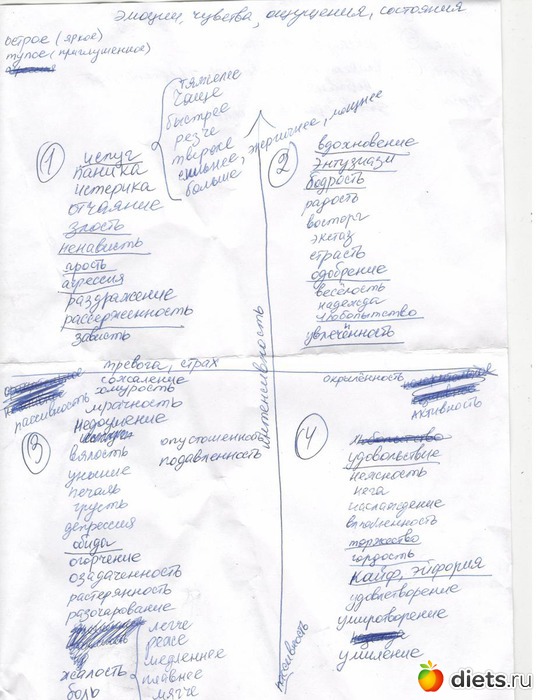 эмоции, чувства, ощущения, состояния
острое (яркое)
тупое (приглушенное)
тяжелее
чаще
быстрее
резче
тверже
сильнее, энергичнее, мощнее
больше
1
испуг
паника
истерика
отчаяние
злость
ненависть
ярость
агрессия
раздражение
рассерженность
зависть
2
вдохновение
энтузиазм
бодрость
радость
восторг
экстаз
страсть
одобрение
весёлость
надежда
любопытство
увлечённость
интенсивность
тревога, страх
пассивность
окрылённость
активность
3
сожаление
хмурость
мрачность
недоумение
вялость
уныние
печаль
грусть
депрессия
обида
огорчение
озадаченность
растерянность
разочарование
жалость
боль
опустошенность
подавленность
легче
реже
медленнее
плавнее
мягче
4
любопытство
удовольствие
нежность
нега
наслаждение
влюбленность
торжество
гордость
кайф, эйфория
удовлетворение
умиротворение
умиление
пассивность
diets.ru